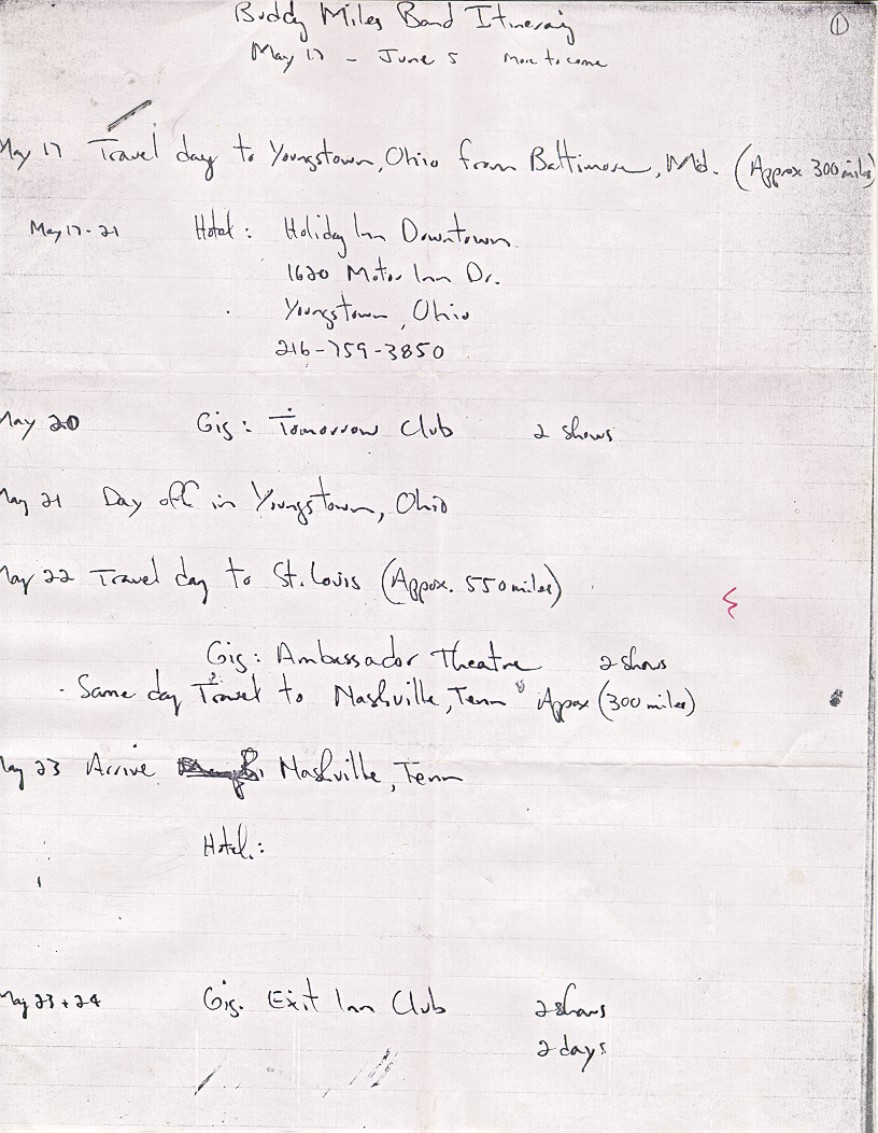 Buddy Miles Band Itinerary
①
May 17 - June 5 more to come
May 17 Travel day to Youngstown, Ohio from Baltimore, Md. (Approx 300 miles)
May 17-21 Hotel: Holiday Inn Downtown
1620 Motor Inn Dr.
Youngstown, Ohio
216-759-3850
May 20 Gig: Tomorrow Club 2 shows
May 21 Day off in Youngstown, Ohio
May 22 Travel day to St. Louis (Approx. 550 miles)
Gig: Ambassador Theatre 2 shows
Same day Travel to Nashville, Tenn Appox (300 miles)
May 23 Arrive Nashville, Tenn
Hotel:
May 23 + 24 Gig. Exit Inn Club 2 shows
2 days